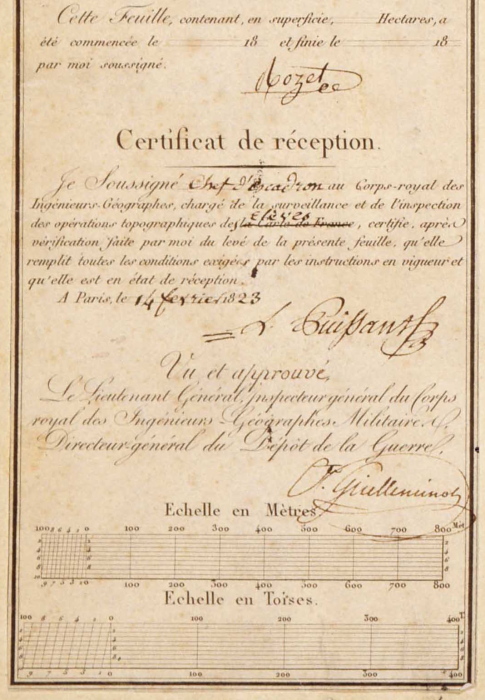 Cette Feuille, contenant, en superficie, Hectares, a
été commencée le 18 et finie le 18
par moi soussigné.
Rozet
Certificat de réception.
Je Soussigné Chef d'Escadron au Corps-royal des
Ingénieurs-Géographes, chargé de la surveillance et de l'inspection
élèves
des opérations topographiques des la Carte de France, certifie, après
vérification faite par moi du levé de la présente feuille, qu'elle
remplit toutes les conditions exigées par les instructions en vigueur et
qu'elle est en état de réception.
A Paris, le 14 fevrier 1823
L. Puissant
Vu et approuvé,
Le Lieutenant Général, inspecteur général du Corps
royal des Ingénieurs-Géographes Militaires,
Directeur général du Dépôt de la Guerre.
Guilleminot
Echelle en Mètres.
100 8 6 4 2 0 100 200 300 400 500 600 700 800 Mèt.
9 7 5 3 1 0 100 200 300 400 500 600 700 800
Echelle en Toises.
100 0 100 200 300 400 T
100 200 300 400